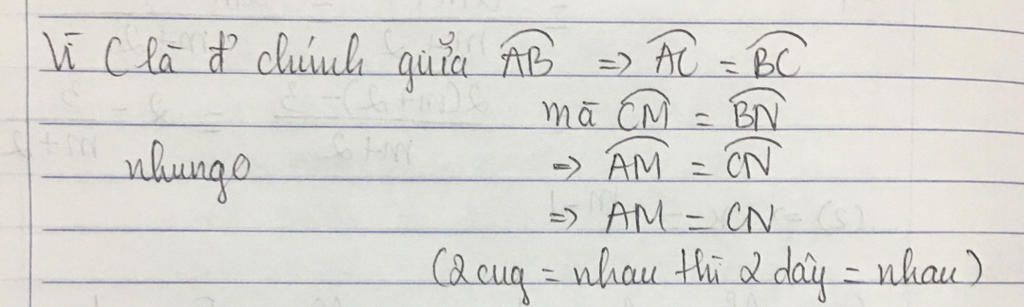 Vì C là đ' chính giữa $\overset{\frown}{AB}$ => $\overset{\frown}{AC}$ = $\overset{\frown}{BC}$
mà $\overset{\frown}{CM}$ = $\overset{\frown}{BN}$
nhungo => $\overset{\frown}{AM}$ = $\overset{\frown}{CN}$
=> AM = CN
(2 cug = nhau thì 2 dây = nhau)